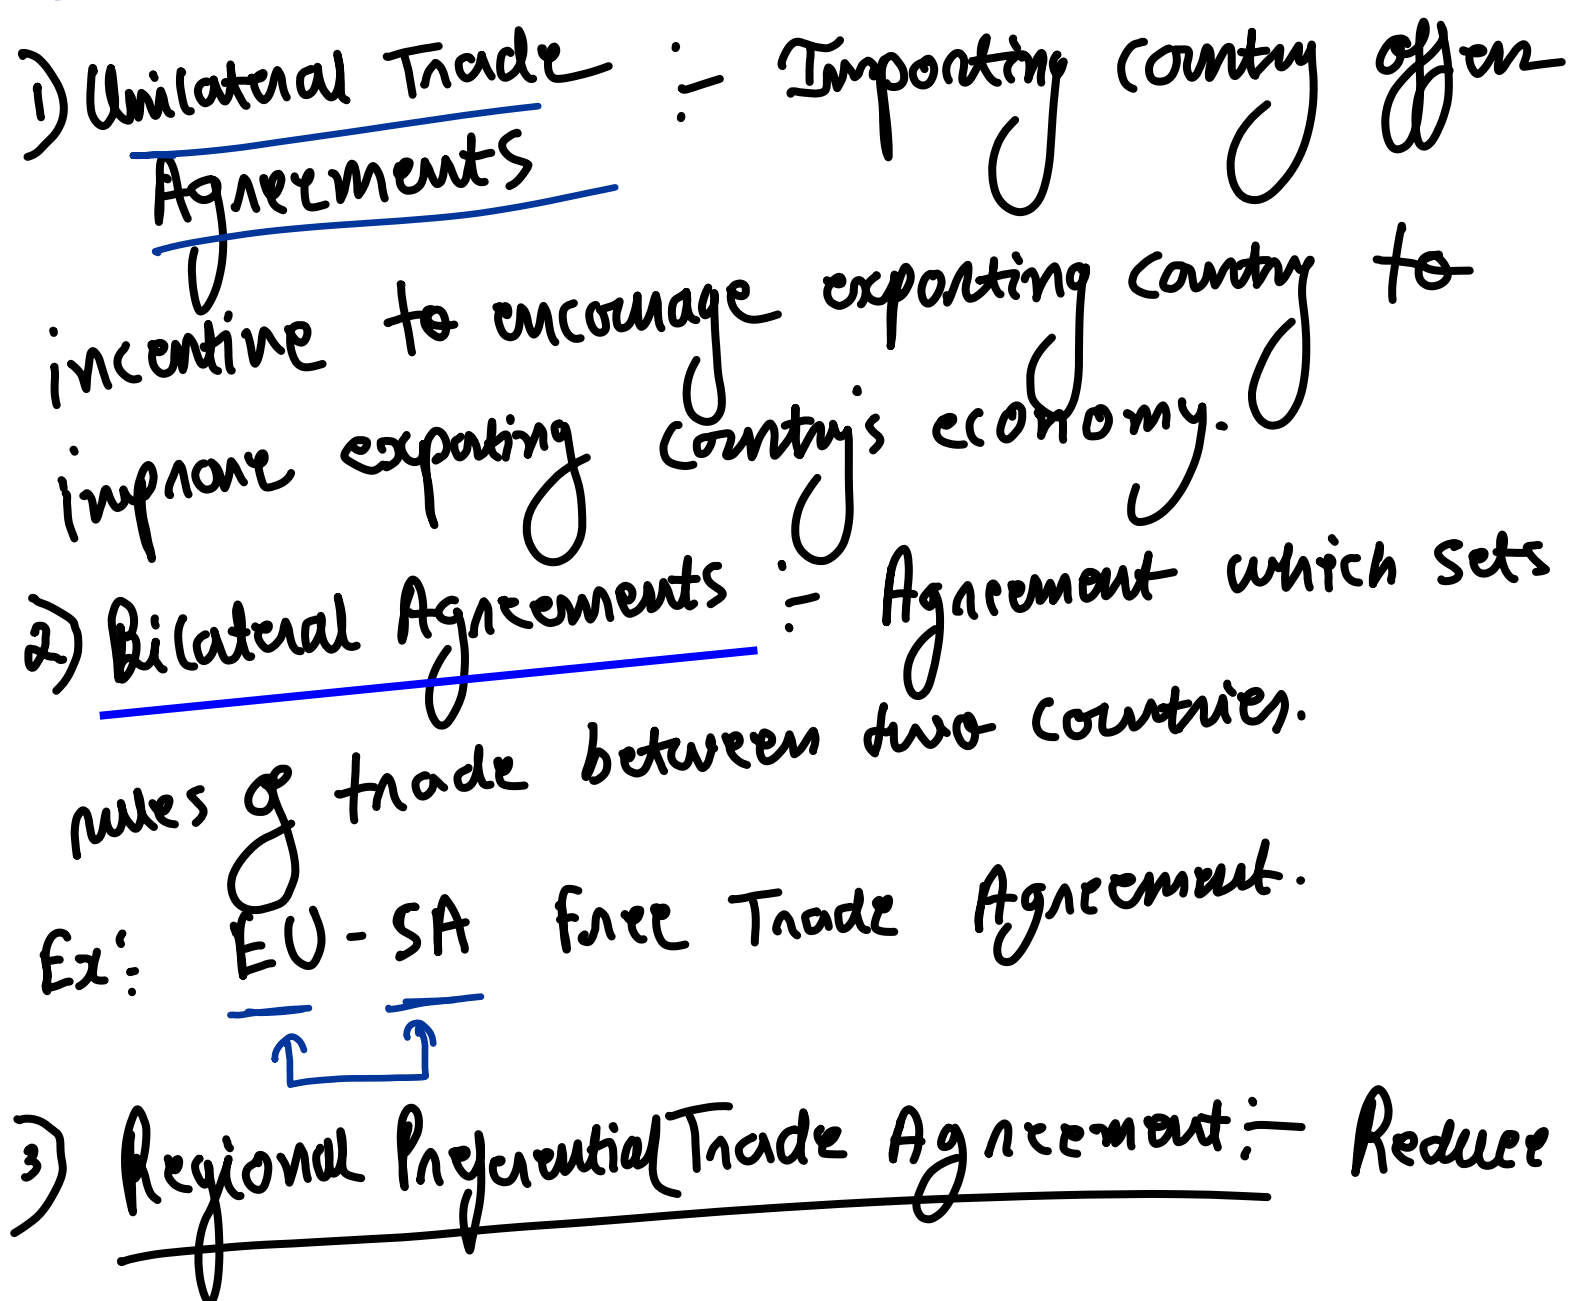 1) Unilateral Trade :- Importing country offers
Agreements
incentive to encourage exporting country to
improve exporting country's economy.
2) Bilateral Agreements :- Agreement which sets
rules of trade between two countries.
Ex: EU - SA Free Trade Agreement.
3) Regional Preferential Trade Agreement :- Reduce